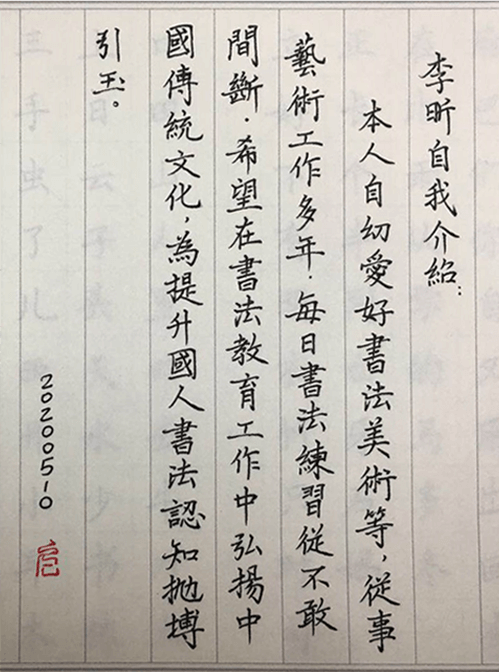 李昕自我介紹：
本人自幼愛好書法美術等，從事
藝術工作多年．每日書法練習從不敢
間斷．希望在書法教育工作中弘揚中
國傳統文化，為提升國人書法認知拋塼
引玉。
20200510